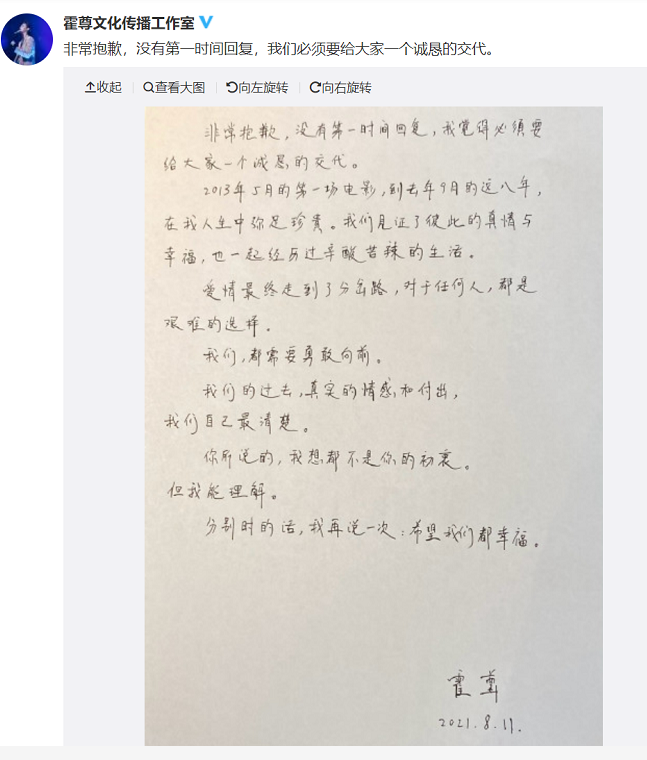 霍尊文化传播工作室
非常抱歉，没有第一时间回复，我们必须要给大家一个诚恳的交代。
收起 查看大图 向左旋转 向右旋转
非常抱歉，没有第一时间回复，我觉得必须要
给大家一个诚恳的交代。
2013年5月的第一场电影，到去年9月的这八年，
在我人生中弥足珍贵。我们见证了彼此的真情与
幸福，也一起经历过辛酸苦辣的生活。
爱情最终走到了分岔路，对于任何人，都是
艰难的选择。
我们，都需要勇敢向前。
我们的过去，真实的情感和付出，
我们自己最清楚。
你所说的，我想都不是你的初衷。
但我能理解。
分别时的话，我再说一次：希望我们都幸福。
霍尊
2021.8.11.